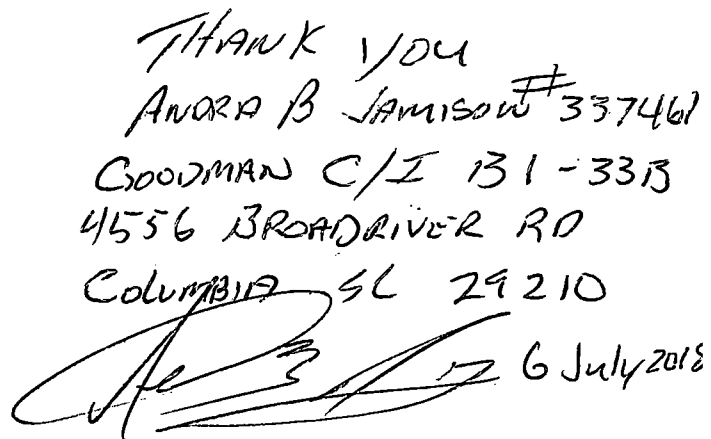 THANK YOU
ANDRA B JAMISON #337461
GOODMAN C/I B1-33B
4556 BROADRIVER RD
COLUMBIA SC 29210
6 July 2018